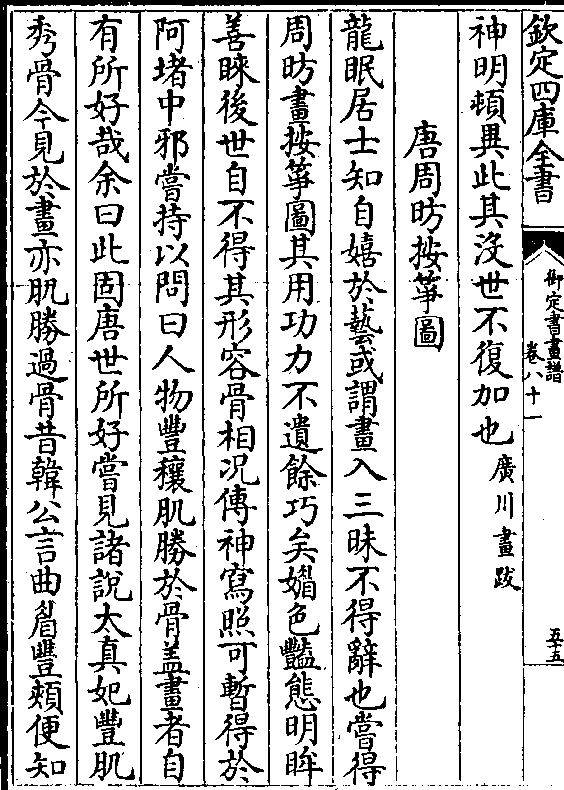 欽定四庫全書
御定書畫譜
卷八十一
五十五
神明頓異此其沒世不復加也廣川畫跋
唐周昉按箏圖
龍眠居士知自嬉於藝或謂畫入三昧不得辭也嘗得
周昉畫按箏圖其用功力不遺餘巧矣媚色豔態明眸
善睞後世自不得其形容骨相况傳神寫照可暫得於
阿堵中邪嘗持以問曰人物豐穰肌勝於骨盖畫者自
有所好哉余曰此固唐世所好嘗見諸說太真妃豐肌
秀骨今見於畫亦肌勝過骨昔韓公言曲眉豐頰便知